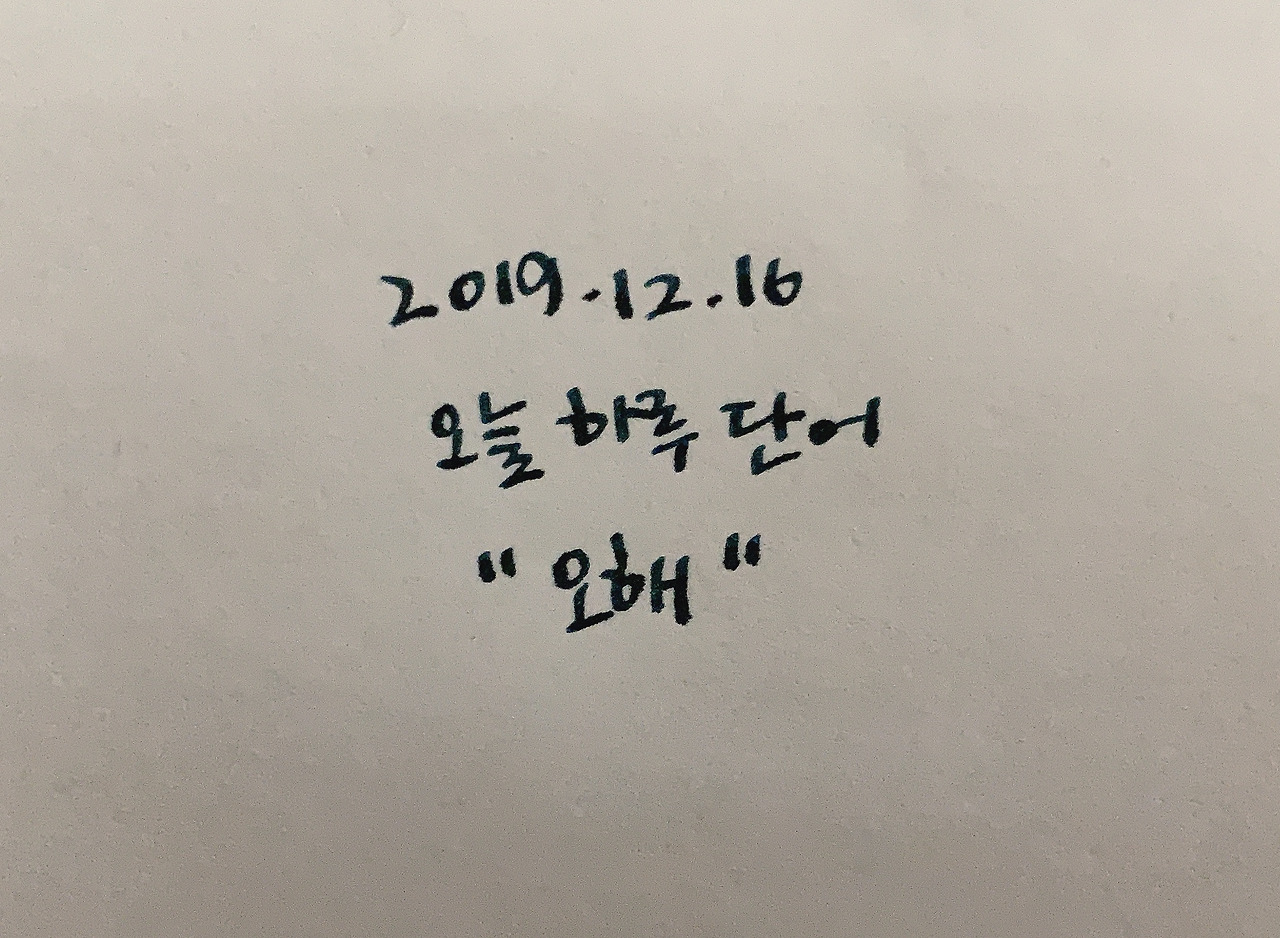 2019.12.16
오늘 하루 단어
"오해"